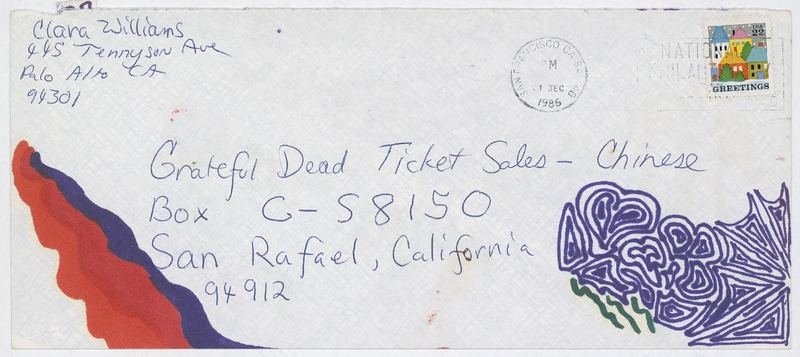 Clara Williams
445 Tennyson Ave
Palo Alto CA
94301
SAN FRANCISCO CA
PM
DEC
1986
USA 22
GREETINGS
Grateful Dead Ticket Sales – Chinese
Box C-S8150
San Rafael, California
94912